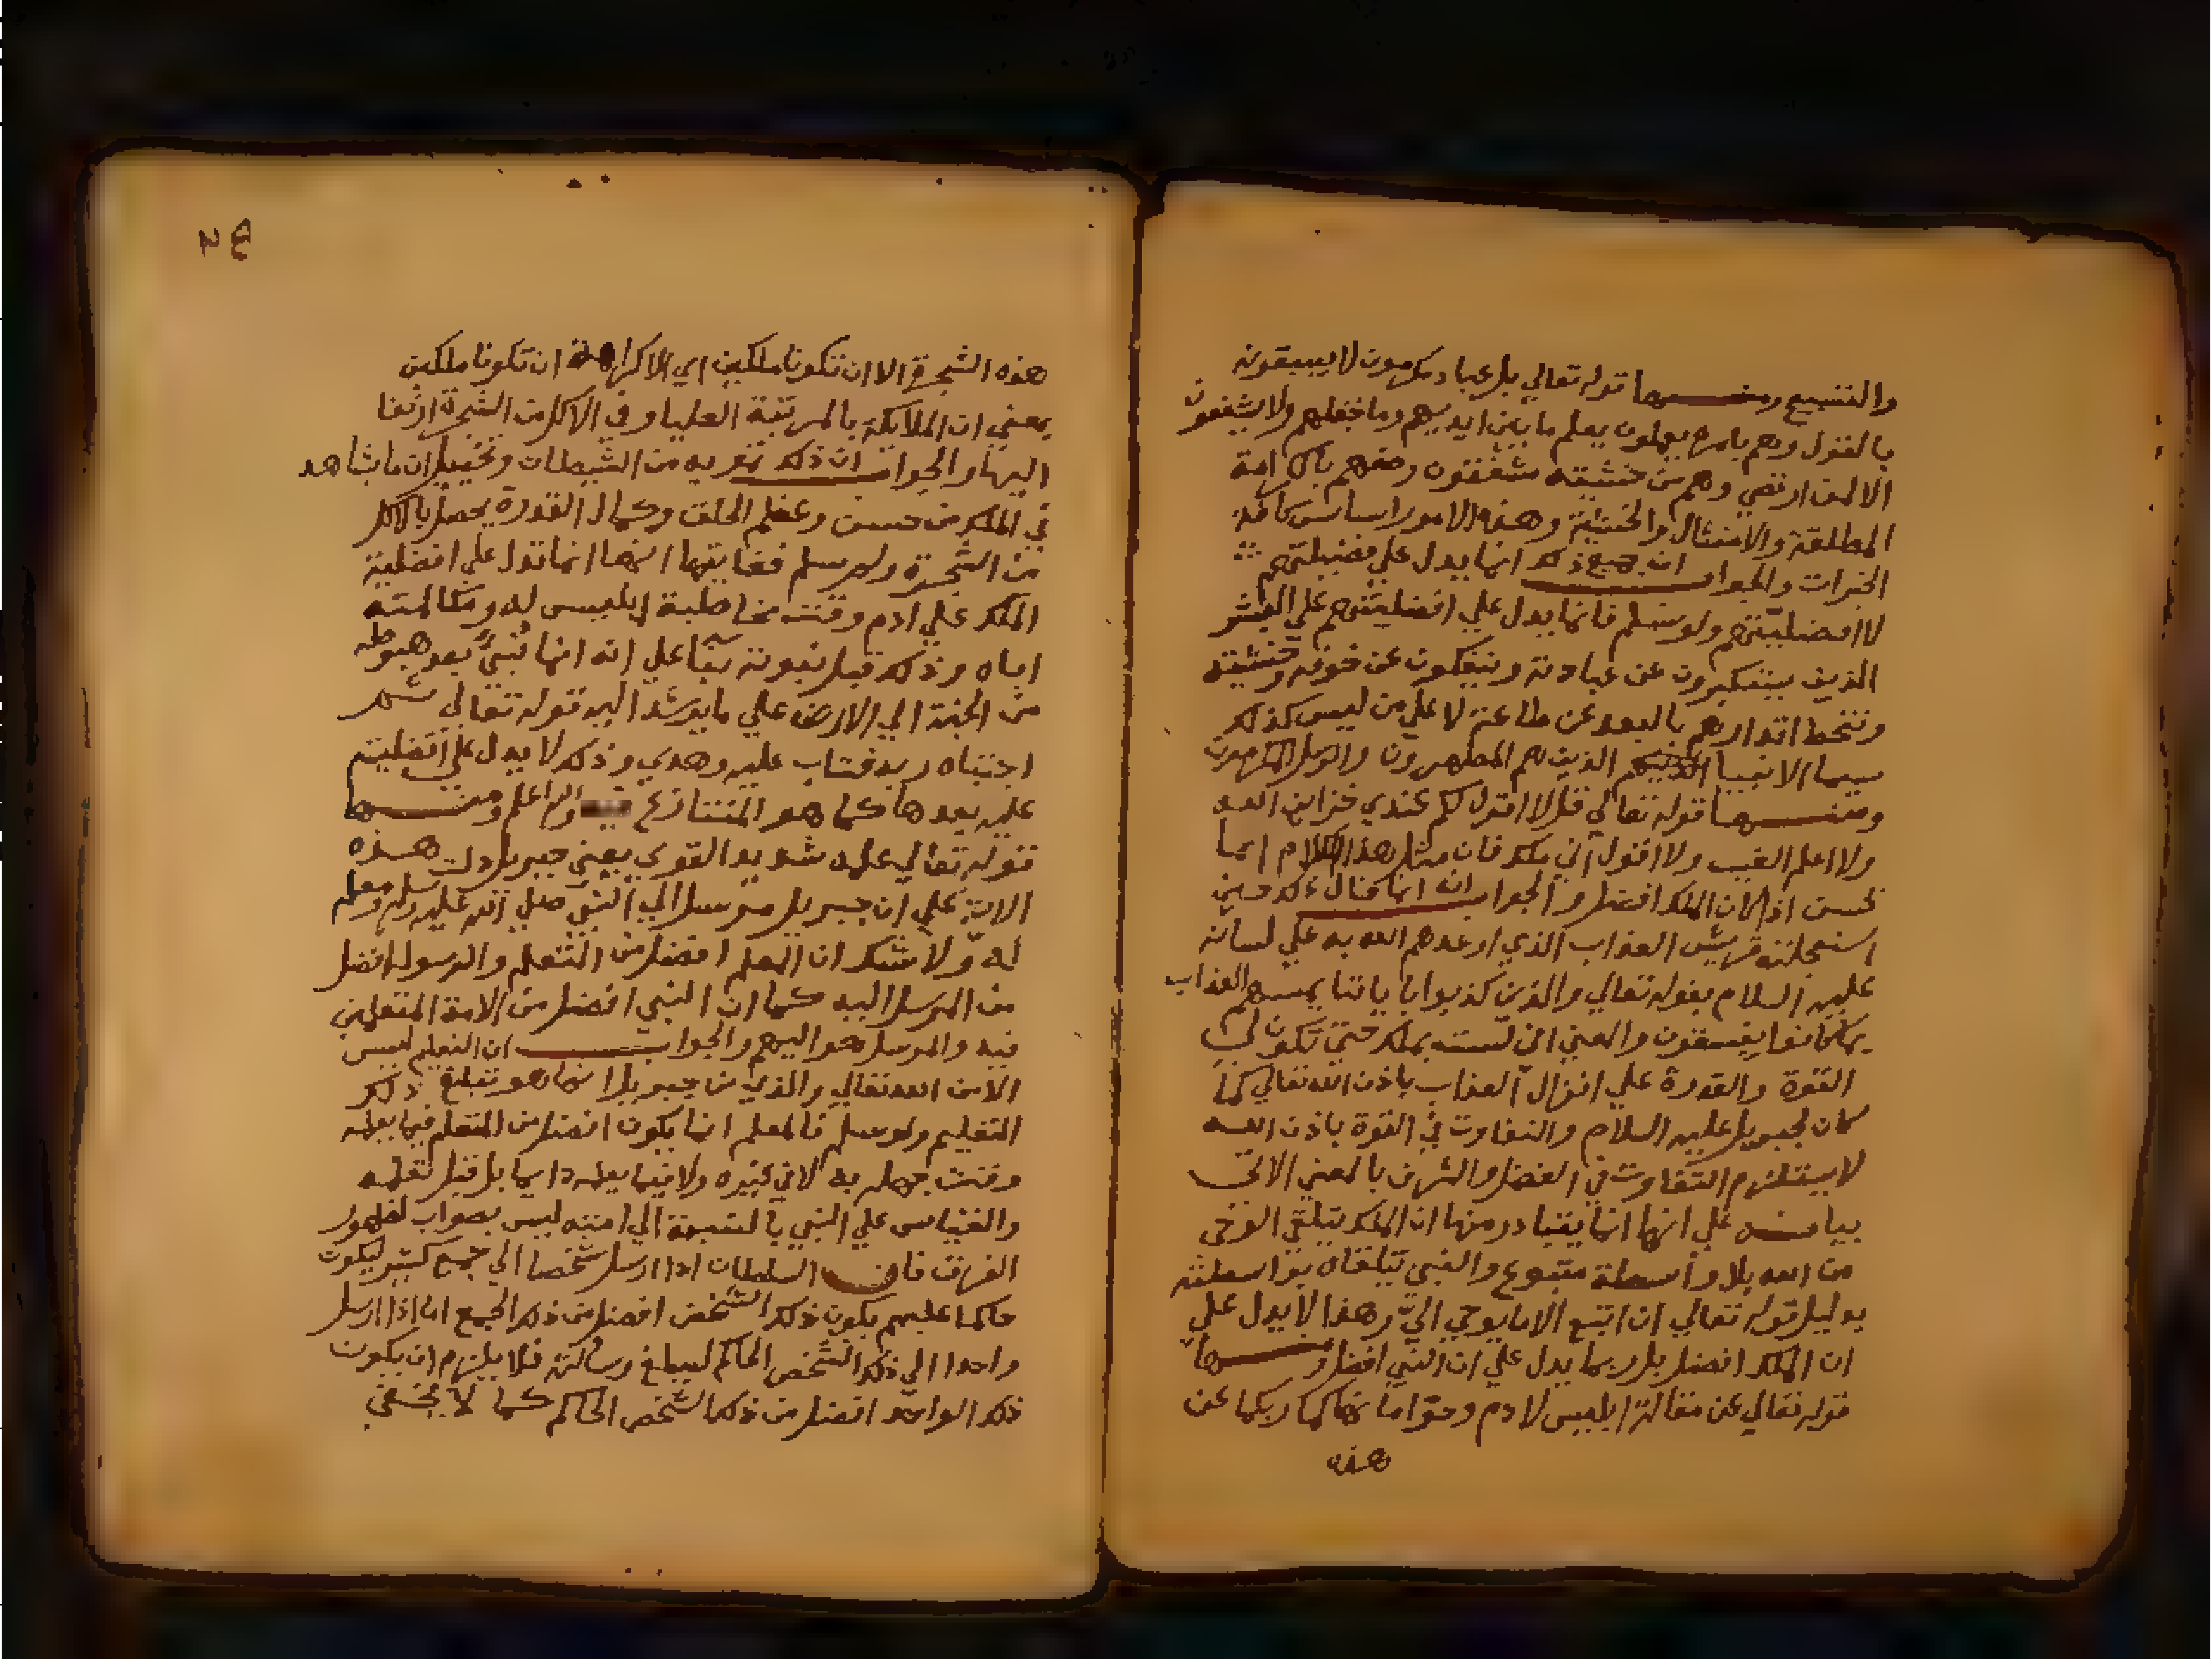 والتسبيح ومنها قوله تعالي بل عباد مكرمون لا يسبقونه
بالقول وهم بامره يعملون يعلم ما بين ايديهم وما خلفهم ولا يشفعون
الا لمن ارتضي وهم من خشيته مشفقون وصفهم بالكرامة
المطلقة والامتثال والخشية وهذه الامور اساس كافة
الخيرات والجواب ان جميع ذلك انما يدل علي فضيلتهم
لا افضليتهم ولو سلم فانما يدل علي افضليتهم علي البشر
الذين يستكبرون عن عبادته وينفكون عن خوفه وخشيته
وتنحط اقدارهم بالبعد عن طاعته لا علي من ليس كذلك
سيما الانبيا الذين هم المطهرون والرسل المكرمون
ومنها قوله تعالي قل لا اقول لكم عندي خزاين الله
ولا اعلم الغيب ولا اقول اني ملك فان مثل هذا الكلام انما
يحسن اذا كان الملك افضل والجواب انه انما قال ذلك حين
استعجلته قريش العذاب الذي اوعدهم الله به علي لسانه
عليه السلام بقوله تعالي والذين كذبوا باياتنا يمسهم العذاب
بما كانوا يفسقون والمعني اني لست بملك حتي تكون لي
القوة والقدرة علي انزال العذاب باذن الله تعالي كما
كان لجبريل عليه السلام والتفاوت في القوة باذن الله
لا يستلزم التفاوت في الفضل والشرف بالمعني الاتي
بيانه علي انها انما يتبادر منها ان الملك يتلقي الوحي
من الله بلا واسطة متبوع والنبي يتلقاه بواسطته
بدليل قوله تعالي ان اتبع الا ما يوحي اليّ وهذا لا يدل علي
ان الملك افضل بل ربما يدل علي ان النبي افضل ومنها
قوله تعالي عن مقالة ابليس لادم وحوّا ما نهاكما ربكما عن
هذه
هذه الشجرة الا ان تكونا ملكين اي الا كراهة ان تكونا ملكين
يعني ان الملايكة بالمرتبة العليا وفي الاكل من الشجرة ارتقا
اليها والجواب ان ذلك تمويه من الشيطان وتخييل ان ما يشاهد
في الملك من حسن وعظم الخلق وكمال القدرة يحصل بالاكل
من الشجرة ولو سلم فغايتها انها انما تدل علي افضلية
الملك علي ادم وقت مخاطبة ابليس له ومكالمته
اياه وذلك قبل نبوته بنآ علي انه انما نُبّيَ بعد هبوطه
من الجنة الي الارض علي ما يرشد اليه قوله تعالي ثم
اجتباه ربه فتاب عليه وهدي وذلك لا يدل علي افضليته
عليه بعدها كما هو المتنازع فيه والله اعلم ومنها
قوله تعالي علمه شديد القوي يعني جبريل دلت هذه
الاية علي ان جبريل مرسل الي النبي صلي الله عليه وسلم ومعلم
له ولا شك ان المعلم افضل من المتعلم والرسول افضل
من المرسل اليه كما ان النبي افضل من الامة المتعلمين
فيه والمرسل هو اليهم والجواب ان التعليم ليس
الا من الله تعالي والذي من جبريل انما هو تبليغ ذلك
التعليم ولو سلم فالمعلم انما يكون افضل من المتعلم فيما يعلمه
وقت جهله به لا في غيره ولا فيما يعلمه دايما بل قبل تعلمه
والقياس علي النبي بالنسبة الي امته ليس بصواب لظهور
الفرق فان السلطان اذا ارسل شخصا الي جمع كثير ليكون
حاكما عليهم يكون ذلك الشخص افضل من ذلك الجمع اما اذا ارسل
واحدا الي ذلك الشخص الحاكم ليبلغ رسالته فلا يلزم ان يكون
ذلك الواحد افضل من ذلك الشخص الحاكم كما لا يخفي